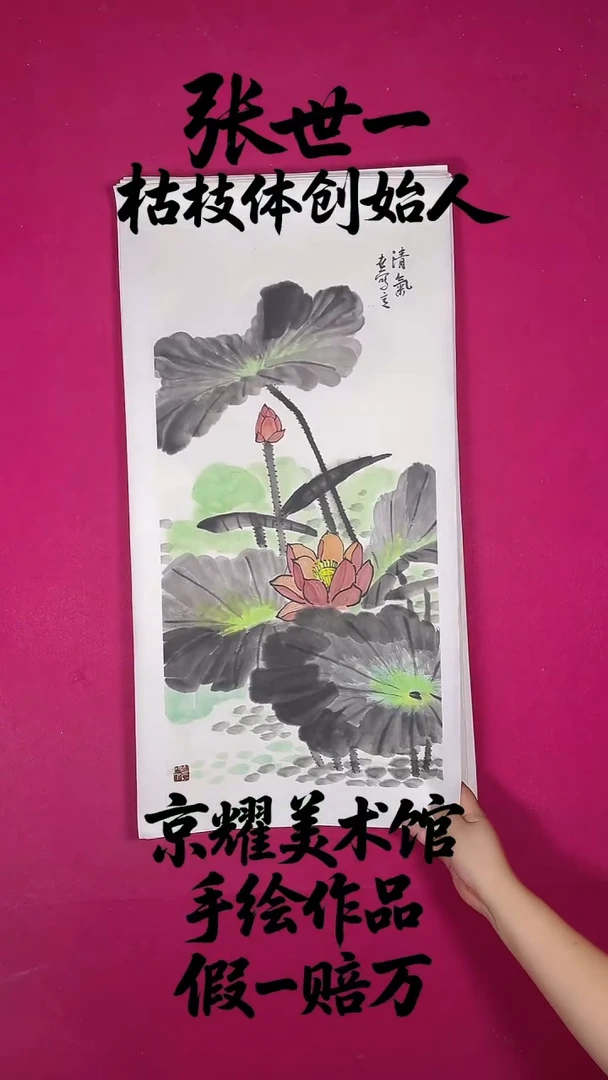 张世一
枯枝体创始人
清氣
京耀美术馆
手绘作品
假一赔万